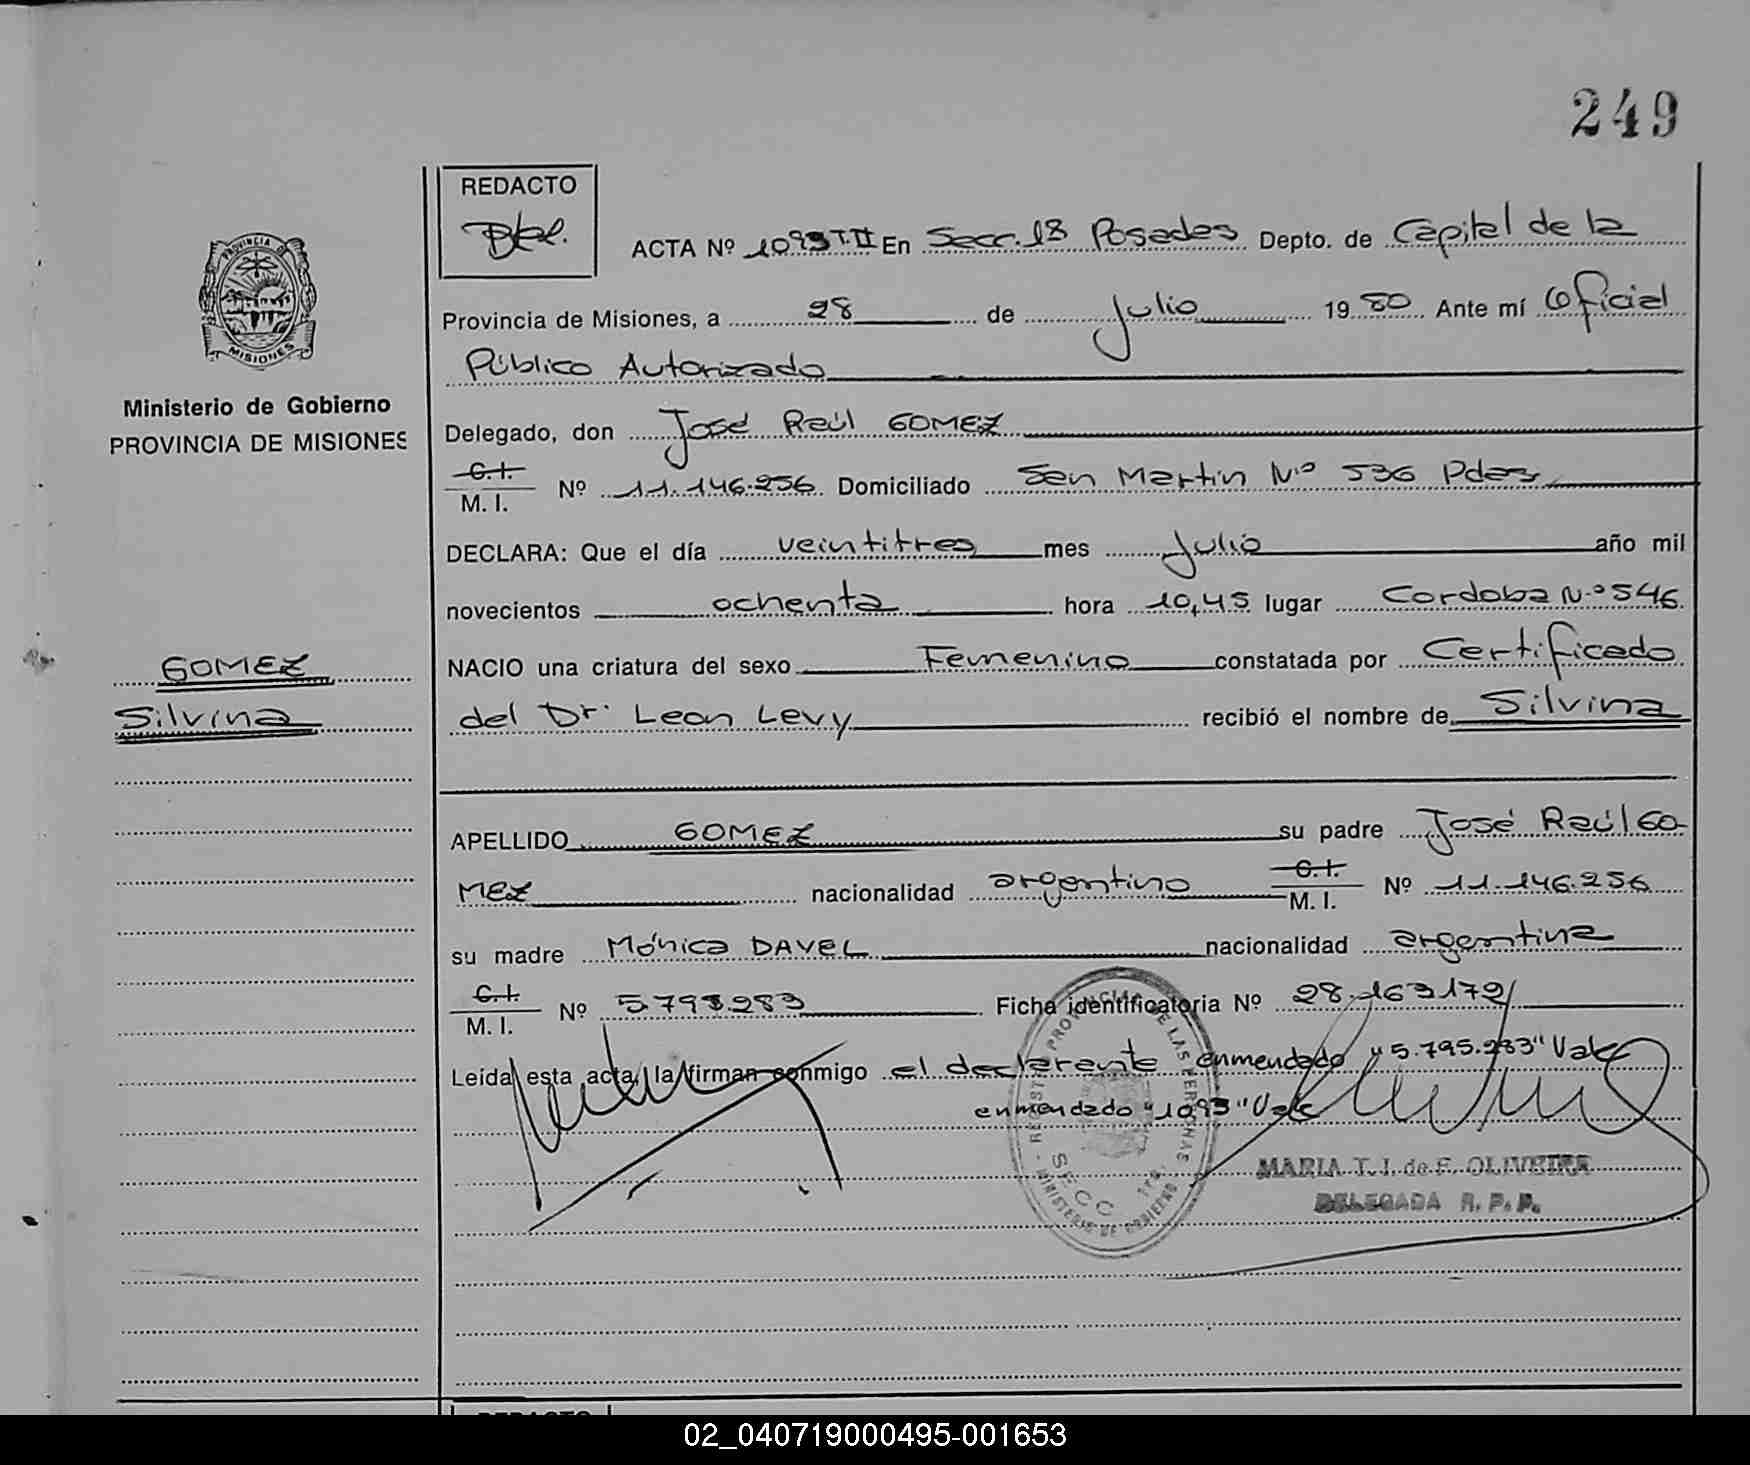 249
REDACTO
ACTA Nº 1093 T.II En Secc. 1ª Posadas Depto. de Capital de la
Provincia de Misiones, a 28 de Julio 1980 Ante mí Oficial
Público Autorizado
Delegado, don José Raúl GOMEZ
C.I.
M. I. Nº 11.146.256 Domiciliado San Martin Nº 536 Pdas
DECLARA: Que el día veintitres mes Julio año mil
novecientos ochenta hora 10,45 lugar Cordoba Nº 546
NACIO una criatura del sexo Femenino constatada por Certificado
del Dr. Leon Levy recibió el nombre de Silvina
APELLIDO GOMEZ su padre José Raúl GO-
MEZ nacionalidad argentino C.I. M. I. Nº 11.146.256
su madre Mónica DAVEL nacionalidad argentina
C.I.
M. I. Nº 5.795.283 Ficha identificatoria Nº 28.163.172
Leída esta acta, la firman conmigo el declarante enmendado "5.795.283" Vale
enmendado "1093" Vale
MARIA T. J. de F. OLIVEIRA
DELEGADA R. P. P.
REGISTRO PROVINCIAL DE LAS PERSONAS
SECC 1ra.
MINISTERIO DE GOBIERNO
PROVINCIA DE
MISIONES
Ministerio de Gobierno
PROVINCIA DE MISIONES
GOMEZ
Silvina
REDACTO
02_040719000495-001653